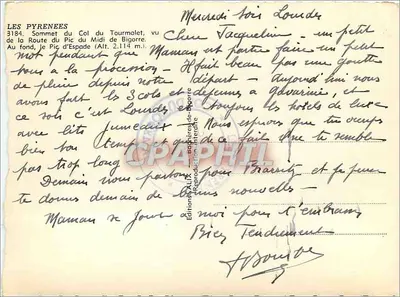 LES PYRENEES
3184. Sommet du Col du Tourmalet, vu
de la Route du Pic du Midi de Bigorre.
Au fond, le Pic d'Espade (Alt. 2.114 m.)
Mercredi soir Lourdes
Chère Jacqueline - un petit
mot pendant que Maman est partie faire un petit
tour à la procession - Il fait beau pas une goutte
de pluie depuis notre départ - Aujourd'hui nous
avons fait les 3 cols et déjeuner à Gavarnie, et
ce soir c'est Lourdes - Toujours les hotels de luxe
avec lits jumeaux - Nous espérons que tu occupes
bien ton temps que ça fait que te semble
pas trop long
Demain nous partons pour Biarritz et je pense
te donner demain de bonnes nouvelles -
Maman se joint à moi pour t'embrasser
Bien Tendrement
CPAPHIL